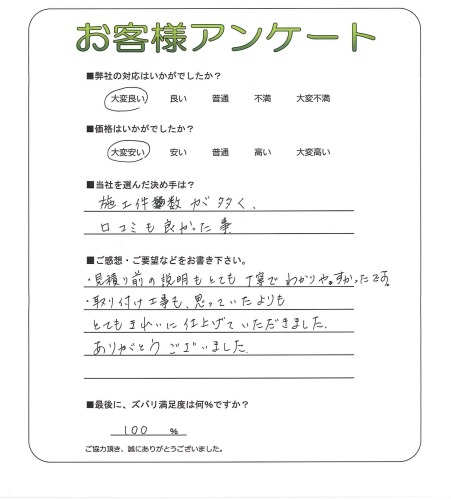 お客様アンケート
■弊社の対応はいかがでしたか？
大変良い 良い 普通 不満 大変不満
■価格はいかがでしたか？
大変安い 安い 普通 高い 大変高い
■当社を選んだ決め手は？
施工件数が多く、
口コミも良かった事
■ご感想・ご要望などをお書き下さい。
・見積り前の説明もとても丁寧でわかりやすかったです。
・取り付け工事も、思っていたよりも
とてもきれいに仕上げていただきました。
ありがとうございました。
■最後に、ズバリ満足度は何%ですか？
100 %
ご協力頂き、誠にありがとうございました。